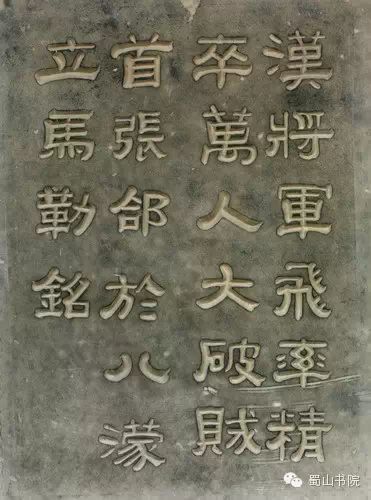 漢將軍飛率精
卒萬人大破賊
首張郃於八濛
立馬勒銘
蜀山书院